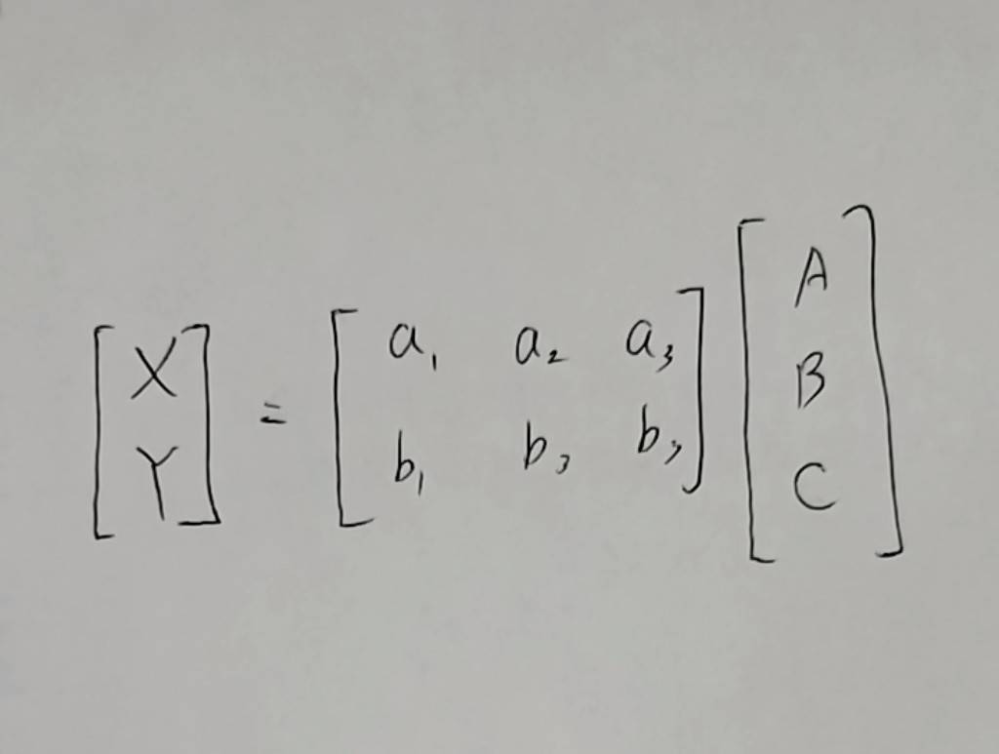 [X Y] = [a₁ a₂ a₃ b₁ b₃ b₃] [A B C]